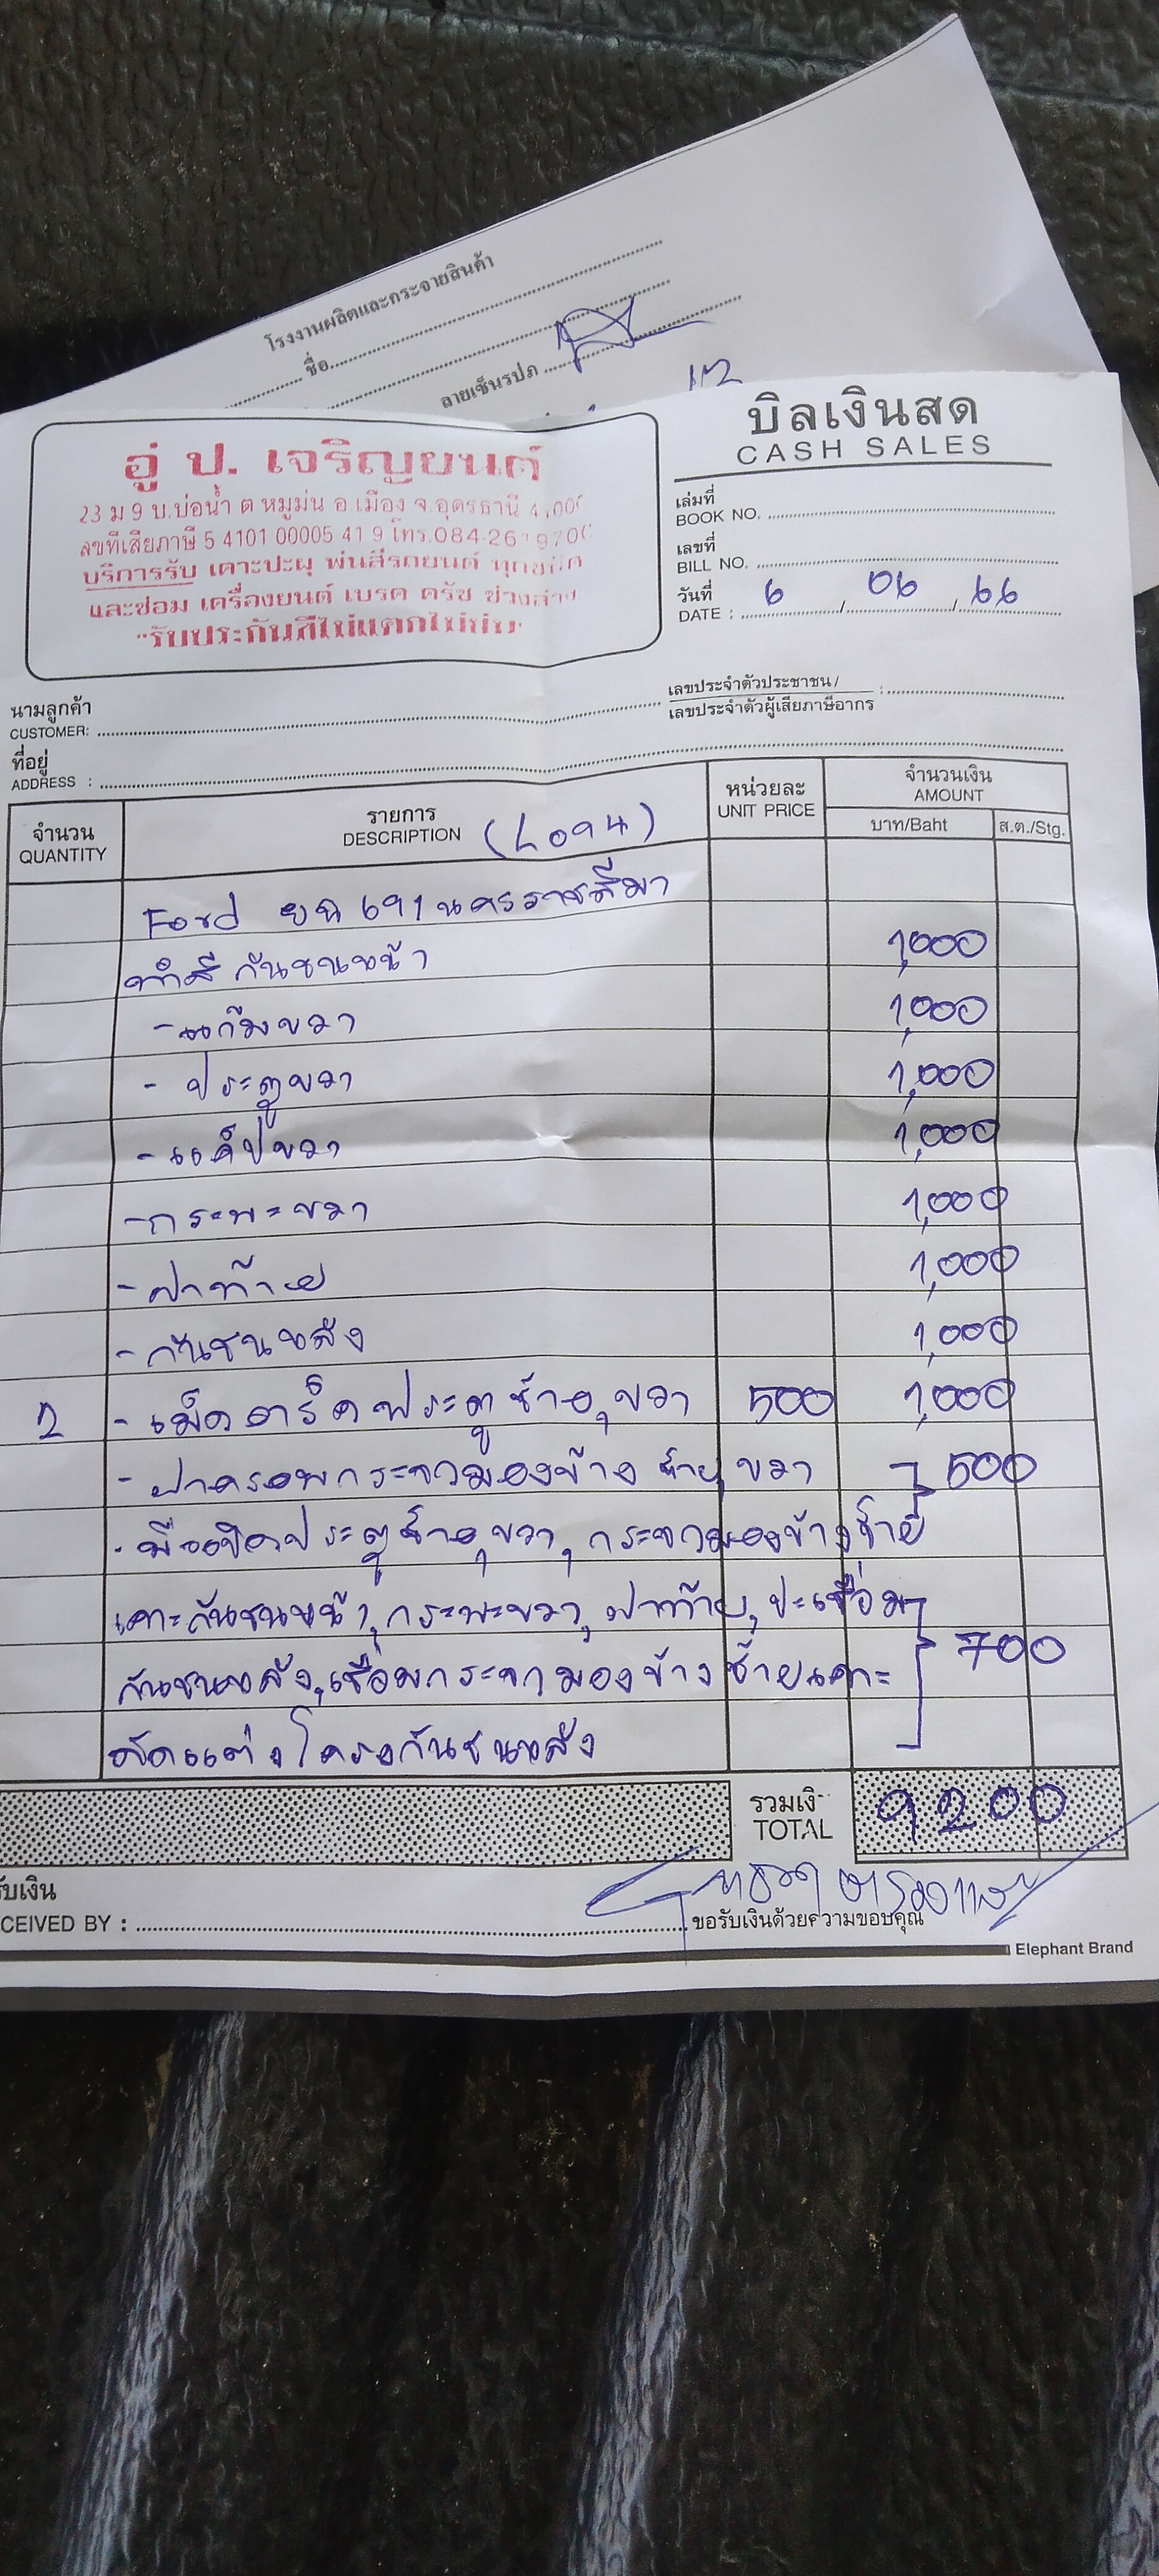 โรงงานผลิตและกระจายสินค้า
ชื่อ
ลายเซ็นรปภ
บิลเงินสด
CASH SALES
อู่ ป. เจริญยนต์
23 ม 9 บ.บ่อน้ำ ต หมูม่น อ.เมือง จ.อุดรธานี
ลขที่เสียภาษี 5 4101 00005 41 9 โทร.084-26
บริการรับ เคาะปะผุ พ่นสีรถยนต์ ทุกชนิด
และซ่อม เครื่องยนต์ เบรค ครัช ช่วงล่าง
"รับประกันสีไม่แตกไม่
เล่มที่
BOOK NO.
เลขที่
BILL NO.
วันที่
DATE : 6 / 06 / 66
นามลูกค้า
CUSTOMER:
เลขประจำตัวประชาชน/
เลขประจำตัวผู้เสียภาษีอากร :
ที่อยู่
ADDRESS :
จำนวน
QUANTITY
รายการ
DESCRIPTION
หน่วยละ
UNIT PRICE
จำนวนเงิน
AMOUNT
บาท/Baht ส.ต./Stg.
Ford ยฉ 691 นครราชสีมา
ทำสี กันชนหน้า 1,000
- แก้มขวา 1,000
- ประตูขวา 1,000
- แค็ปขวา 1,000
- กระพะขวา 1,000
- ฝาท้าย 1,000
- กันชนหลัง 1,000
2 - เม็ดดาร็คประตูซ้าย,ขวา 500 1,000
- ฝาครอบกระจกมองข้าง ซ้าย,ขวา 500
- มือเปิดประตูซ้าย,ขวา,กระจกมองข้างซ้าย
เคาะกันชนหน้า,กระพะขวา,ฝาท้าย,ปะเชื่อม
กันชนหลัง,เชื่อมกระจกมองข้างซ้ายเคาะ 700
ดัดแต่งโครงกันชนหลัง
รวมเงิ
TOTAL 9200
รับเงิน
CEIVED BY :
ขอรับเงินด้วยความขอบคุณ
Elephant Brand